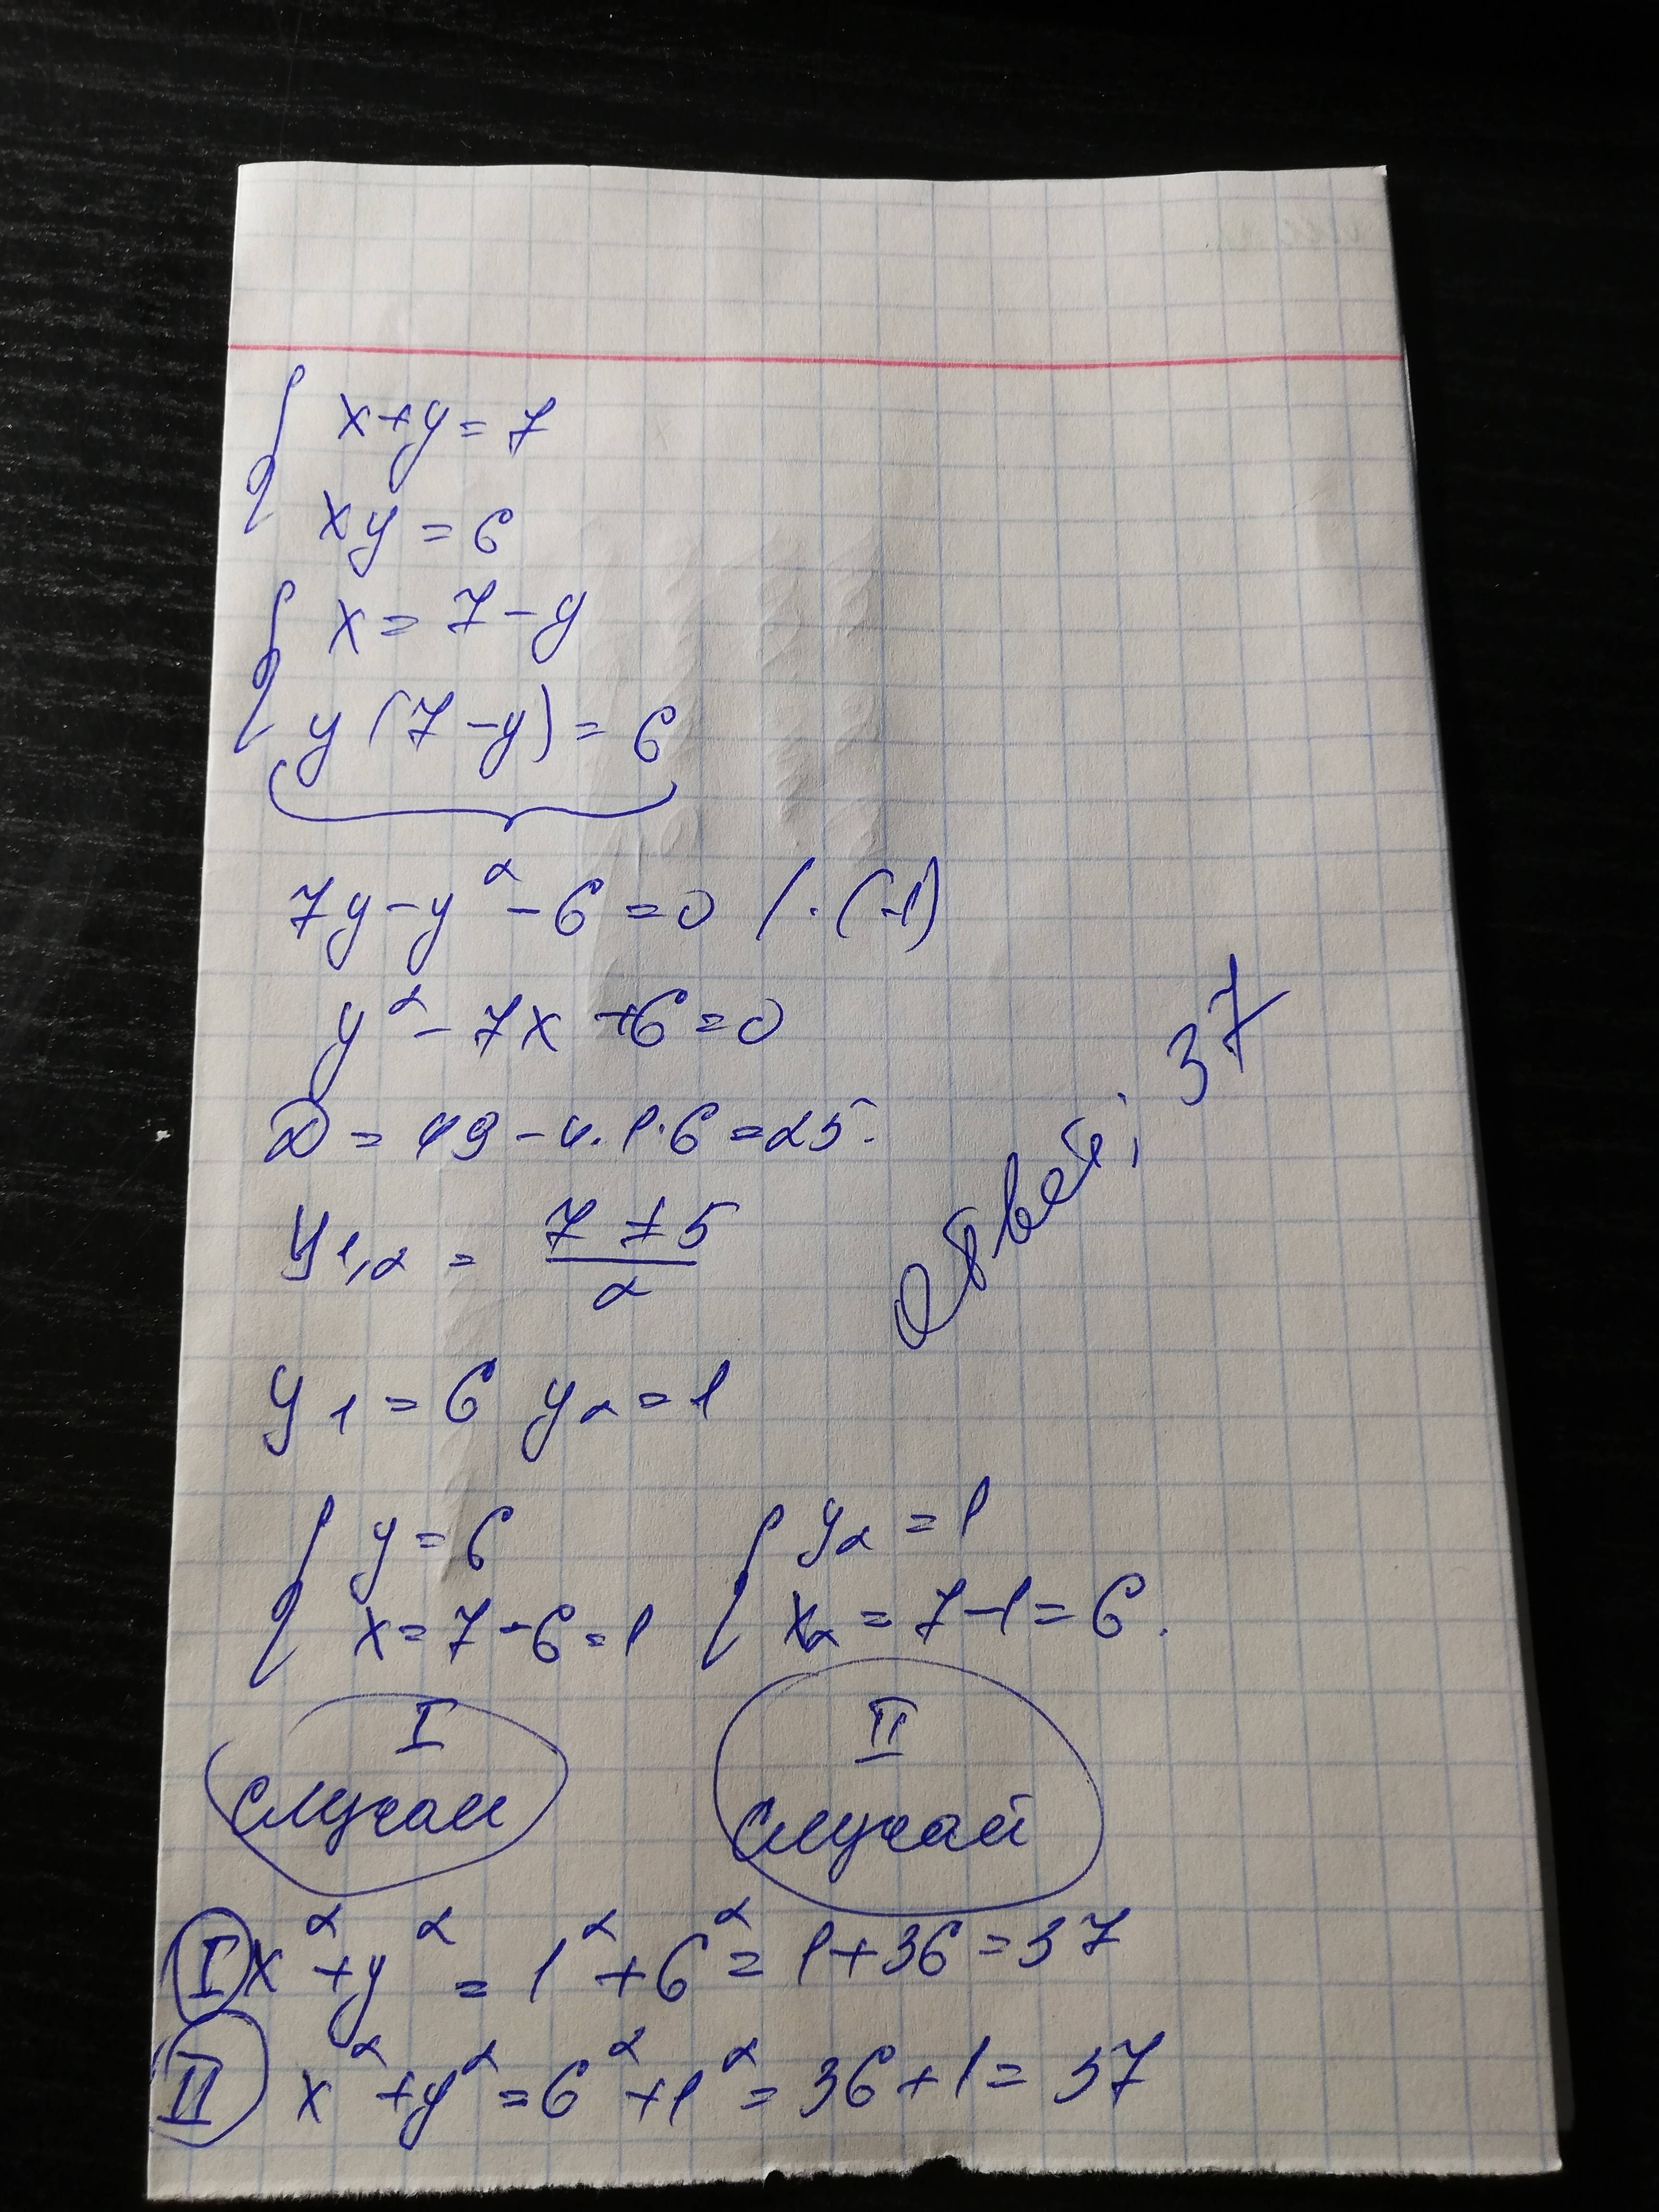 x+y=7
xy=6
x=7-y
y(7-y)=6
7y-y²-6=0 /·(-1)
y²-7x+6=0
D=49-4·1·6=25.
y₁,₂ = (7±5)/2
y₁=6 y₂=1
y=6
x=7-6=1
y₂=1
x₂=7-1=6.
I
случай
II
случай
I x²+y²=1²+6²=1+36=37
II x²+y²=6²+1²=36+1=37
Ответ: 37